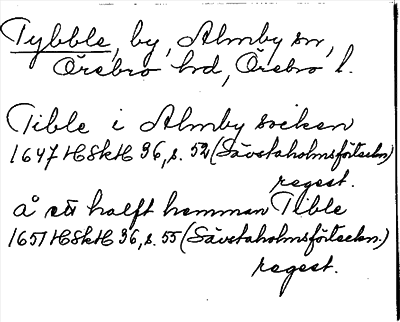 Tybble, by, Almby sn,
Örebro hrd, Örebro l.
Tible i Almby socken
1647 HSkH 36, s. 52 (Sävstaholmsförteckn.)
regest.
å ett halft hemman Tible
1651 HSkH 36, s. 55 (Sävstaholmsförteckn.)
regest.